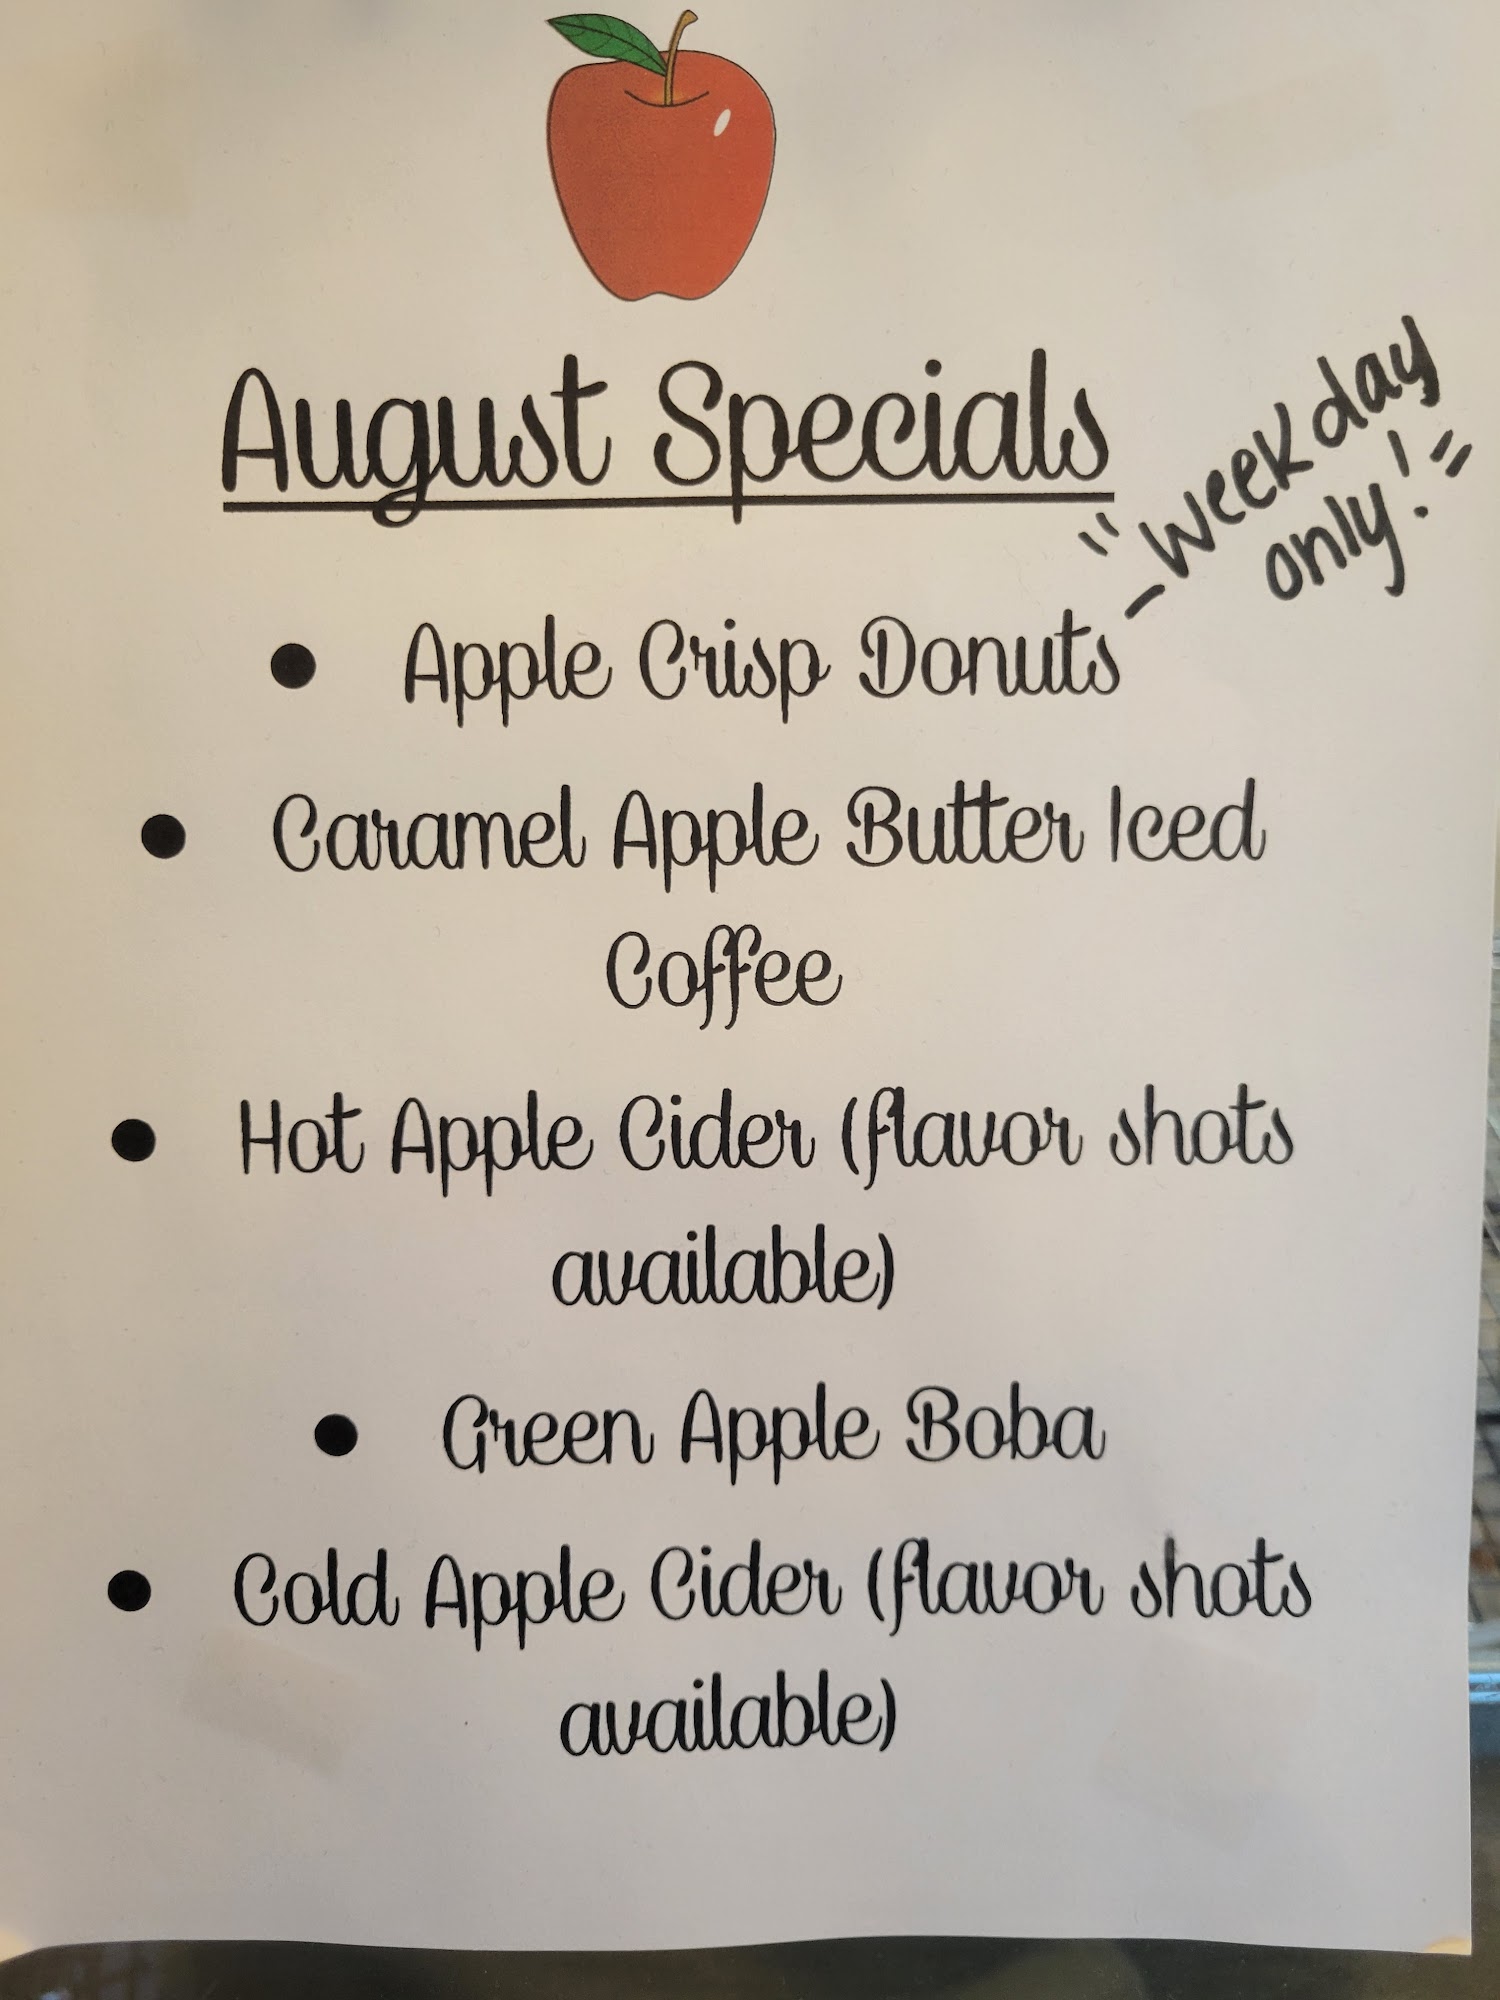 August Specials
"-weekday
only!"
• Apple Crisp Donuts
• Caramel Apple Butter Iced
Coffee
• Hot Apple Cider (flavor shots
available)
• Green Apple Boba
• Cold Apple Cider (flavor shots
available)